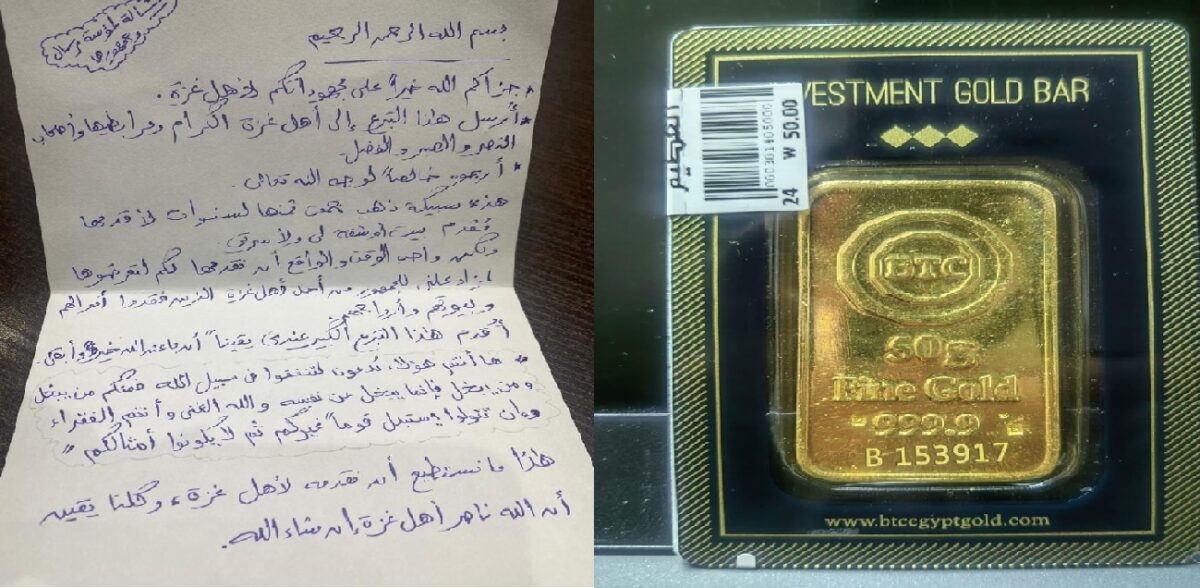 رسالة لمؤسسة مرسال
وجمهورها
بسم الله الرحمن الرحيم
* جزاكم الله خيراً على مجهوداتكم لأهل غزة.
* أرسل هذا التبرع إلى أهل غزة الكرام ومرابطيها وأصحاب
النصر والصبر والفضل.
* أرجوه خالصاً لوجه الله تعالى.
هذه سبيكة ذهب جمعت ثمنها لسنوات لأقدمها
مقدم بيت أو شقة لي ولأسرتي
ولكن واجب الوقت والواقع أن نقدمها لكم لتعرضوها
مزاد علني للجمهور من أجل أهل غزة الذين فقدوا أموالهم
وبيوتهم وأرواحهم.
أقدم هذا التبرع الكبير عندي يقيناً أن ما عند الله خير وأبقى.
" ها أنتم هؤلاء تدعون لتنفقوا في سبيل الله فمنكم من يبخل
ومن يبخل فإنما يبخل عن نفسه والله الغني وأنتم الفقراء
وإن تتولوا يستبدل قوماً غيركم ثم لا يكونوا أمثالكم "
هذا ما نستطيع أن نقدمه لأهل غزة، وكلنا يقين
أن الله ناصر أهل غزة إن شاء الله.
VESTMENT GOLD BAR
24 W 50.00
BTC
50g
Fine Gold
999.9
B 153917
www.btcegyptgold.com